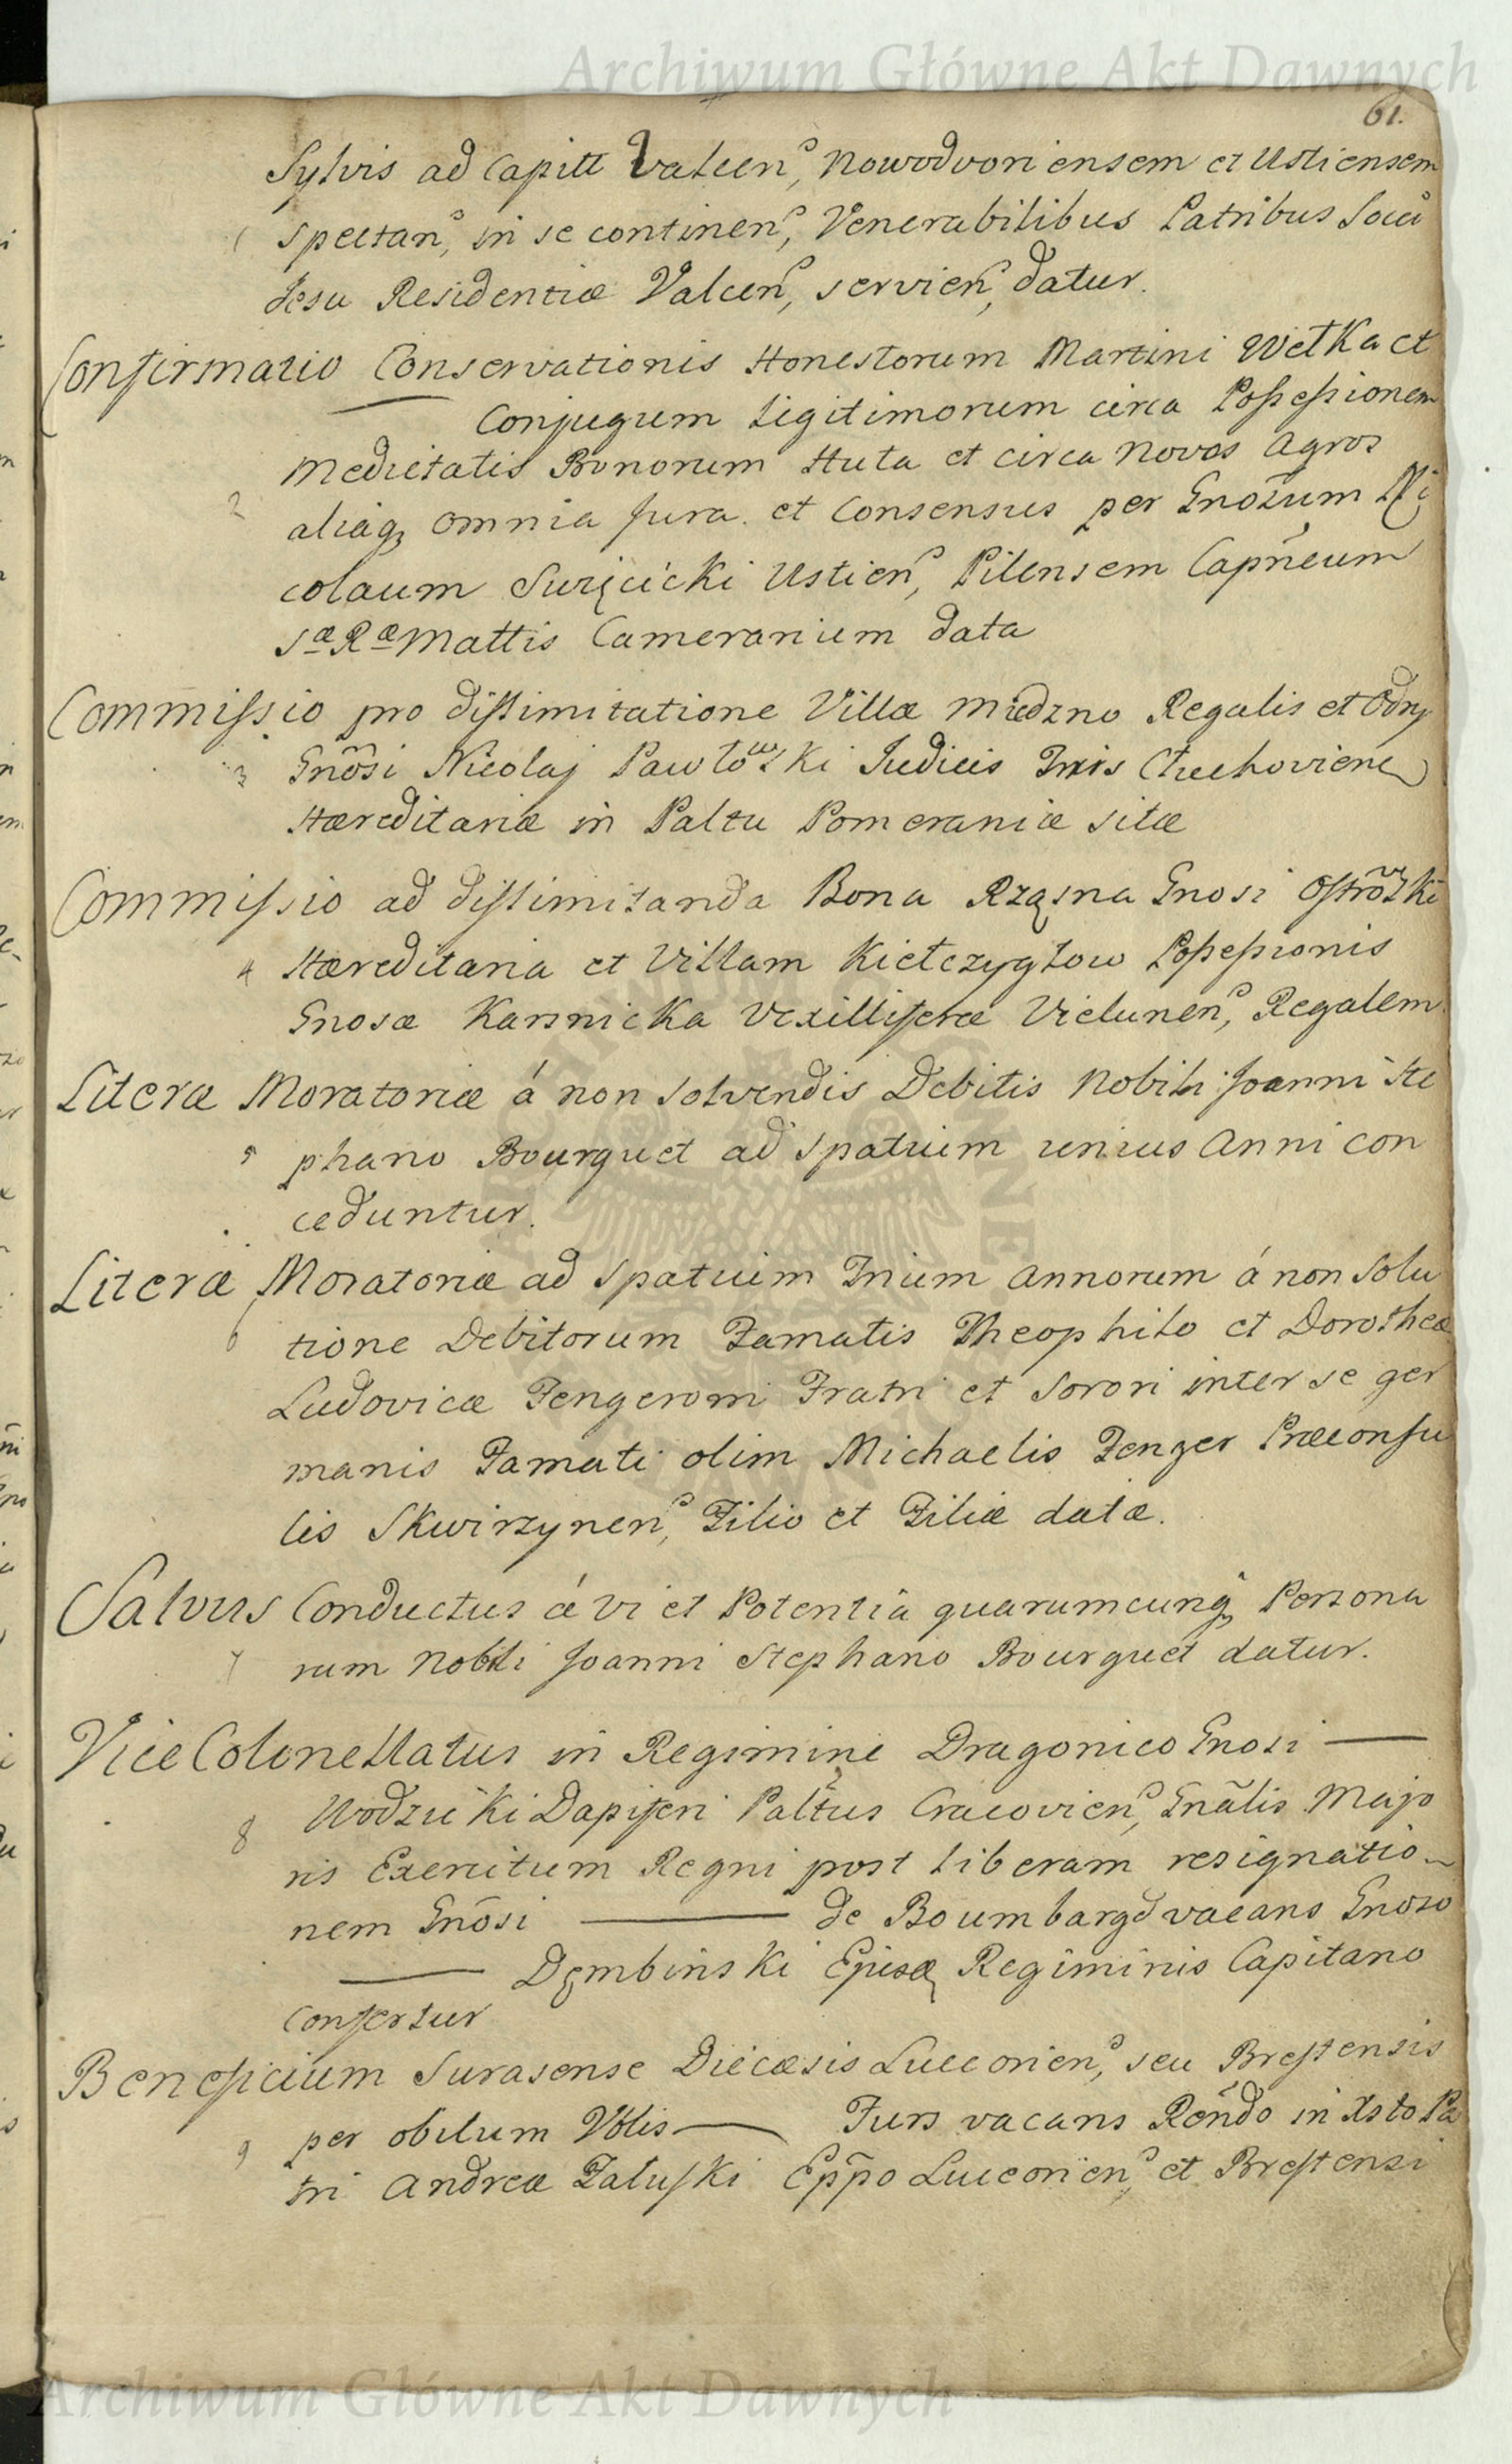 Archiwum Główne Akt Dawnych
61.
Sylvis ad Capitt Valcen, Nowodvoriensem et Ustiensem
1 spectan, in se continen, Venerabilibus Patribus Soci
Jesu Residentiæ Valcen, servien, datur.
Confirmatio Conservationis Honestorum Martini Wełka et
Conjugum Legitimorum circa Possessionem
Medietatis Bonorum Huta et circa Novos Agros
2 aliaq, omnia Jura et Consensus per Gnosum Ni
colaum Ustien, Pilensem Capneum
Sæ Ræ Mattis Camerarium data
Commissio pro dislimitatione Villæ Miedzno Regalis et Odry
3 Gnosi Nicolaj Pawłowski Judicis Tris Człuchovien
Hæreditariæ in Paltu Pomeraniæ sitæ
Commissio ad dislimitanda Bona Rząsna Gnosi Ostrowski
4 Hæreditaria et Villam Kiełczygłow Possessionis
Gnosæ Karsnicka Vexilliferæ Vielunen, Regalem
Literæ Moratoriæ á non solvendis Debitis Nobili Joanni Ste
5 phano Bourguet ad spatium unius Anni con
ceduntur.
Literæ Moratoriæ ad spatium Trium Annorum á non Solu
6 tione Debitorum Famatis Theophilo et Dorotheæ
Ludovicæ Fengerom Fratri et Sorori inter se ger
manis Famati olim Michaelis Fenger Præconsu
lis Skwirzynen, Filio et Filiæ datæ.
Salvus Conductus á vi et Potentia quarumcunq, Persona
7 rum Nobili Joanni Stephano Bourguet datur.
ViceColonellatus in Regimine Dragonico Gnosi —
8 Wodzicki Dapiferi Paltus Cracovien, Gnalis Majo
ris Exercituum Regni post liberam resignatio
nem Gnosi — de Boumbargd vacans Gnoso
— Dęmbinski Ejusd Regiminis Capitano
Confertur
Beneficium Surasense Diecæsis Luceorien, seu Brestensis
9 per obitum Vblis — Furs vacans Rendo in Xsto Pa
tri Andreæ Załuski Eppo Luceorien, et Brestensi
Archiwum Główne Akt Dawnych